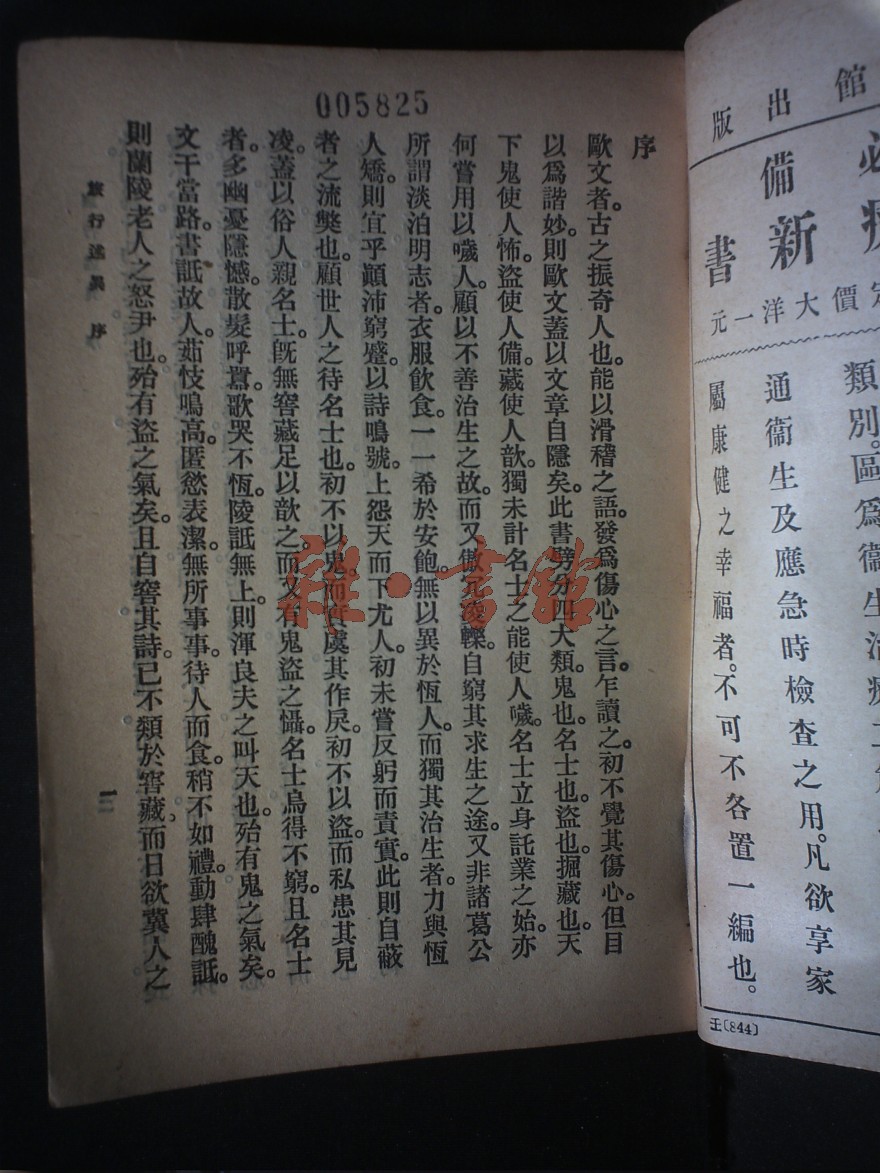 館出版
備
新書
定價大洋一元
類別。區爲衞生治療
通衞生及應急時檢查之用。凡欲享家
屬康健之幸福者。不可不各置一編也。
王(844)
005825
序
歐文者。古之振奇人也。能以滑稽之語。發爲傷心之言。乍讀之。初不覺其傷心。但目
以爲諧妙。則歐文蓋以文章自隱矣。此書劈分四大類。鬼也。名士也。盜也。掘藏也。天
下鬼使人怖。盜使人備。藏使人歆。獨未計名士之能使人噦。名士立身託業之始。亦
何嘗用以噦人。顧以不善治生之故。而又傲兀凌轢。自窮其求生之途。又非諸葛公
所謂淡泊明志者。衣服飲食。一一希於安飽。無以異於恆人。而獨其治生者。力與恆
人矯。則宜乎顚沛窮蹙。以詩鳴號。上怨天而下尤人。初未嘗反躬而責實。此則自蔽
者之流獘也。顧世人之待名士也。初不以鬼。而實虞其作戾。初不以盜。而私患其見
凌。蓋以俗人親名士。旣無窖藏足以歆之。而又有鬼盜之懾。名士烏得不窮。且名士
者。多幽憂隱憾。散髮呼囂。歌哭不恆。陵詆無上。則渾良夫之叫天也。殆有鬼之氣矣。
文干當路。書詆故人。茹忮鳴高。匿慾表潔。無所事事。待人而食。稍不如禮。動肆醜詆。
則蘭陵老人之怒尹也。殆有盜之氣矣。且自窖其詩。已不類於窖藏。而日欲冀人之
旅行述異 序
一
雜·書館